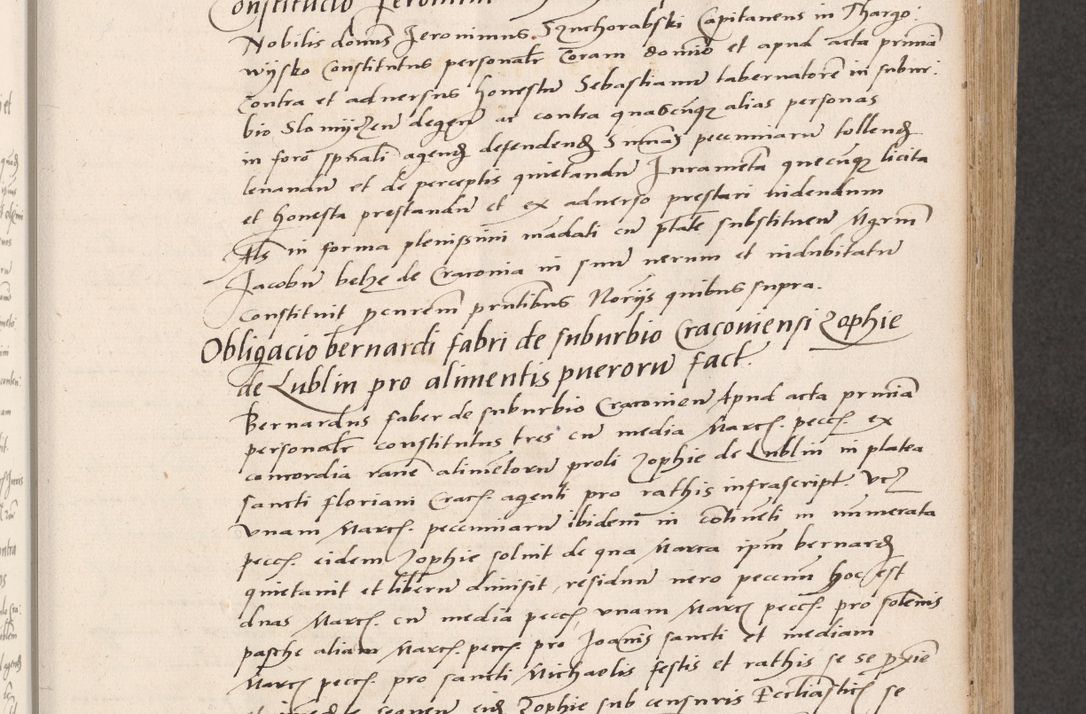 Constitucio Jeronimi
Nobilis domnus Jeronimus Szuchorabski Capitaneus in Thargo:
wysko Constitutus personalr Coram domino et apud acta prnia
Contra et adversus honestum Sebastianum tabernatorem in subur:
bio Slomyzen degen ac contra quascunque alias personas
in foro spuali agend defendend Summas pecuniarum tollend
levandum et de perceptis quietandum Juramenta quecunque licita
et honesta prestandum et ex adverso prestari videndum
Als in forma plenissimi mandati cum ptate substituen Mgrm
Jacobum belze de Cracovia in suum verum et indubitatum
Constituit pcurem prntibus Noriis quibus supra.
Obligacio bernardi fabri de suburbio Cracoviensi Zophie
de Lublin pro alimentis puerorum fact.
Bernardus faber de suburbio Cracovien Apud acta prnia
personalr constitutus tres cum media Marcs. peccs. ex
concordia rane alimetorum proli Zophie de Lublin in platea
sancti floriani Cracs. agenti pro rathis infrascript. Utz
unam Marcs. pecuniarum ibidem in cotineti in numerata
peccs. eidem Zophie solvit de qua Marca ipm bernard
quietavit et liberum dimisit, residuum vero peccum hoc est
duas Marcs. cum media peccs. unam Marcs peccs. pro solenis
pasche aliam Marcs. peccs. pro Joanis sancti et mediam
Marcs peccs. pro sancti Michaelis festis et rathis se se pxie
sequen eid Zophie sub censuris Eccliasticis se